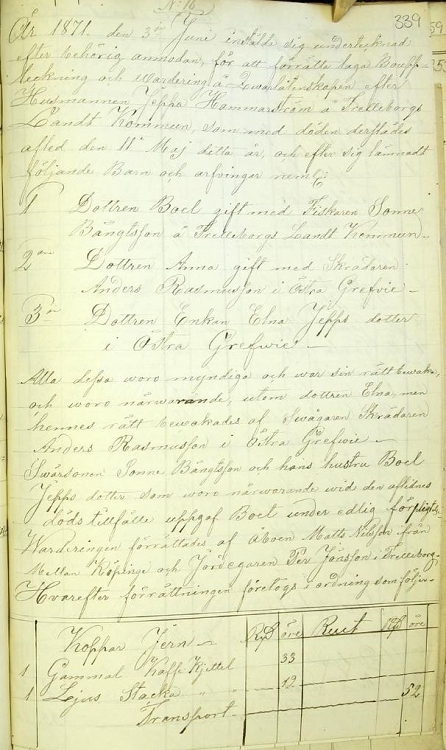 N:16
339
År 1871. den 3 Juni instälde sig undertecknad
efter behörig anmodan, för att förrätta lagar Boupp-
teckning och Wardering å Qwarlåtenskapen efter
Husmannen Jeppa Hammarström å Trelleborgs
Landt Kommun, som med döden derstädes
afled den 11 Maj detta år, och efter sig lämnadt
följande Barn och arfvingar neml:
1 Dottren Boel gift med Fiskaren Sonne
Bängtsson å Trelleborgs Landt Kommun
2 Dottren Anna gift med Skrädaren
Anders Rasmusson i Östra Grefvie
3 Dottren Enkan Elna Jepps dotter
i Östra Grefwie
Alla dessa woro myndiga och war sin rätt bewaka,
och woro närwarande, utom dottren Elna, men
hennes rätt bewakades af Swågaren Skrädaren
Anders Rasmusson i Östra Grefwie
Swärsonen Sonne Bängtsson och hans hustru Boel
Jepps dotter som woro närwarande wid den aflidnes
dödstillfälle uppgaf Boet under edlig förpligt
Warderingen förrättades af Åboen Matts Nelsson från
Mellan Köpinge och Jördegaren Per Jönsson i Trelleborg
Hvarefter förrättningen företogs i ordning som följer
Koppar Jern Rd öre Rd öre
1 Gammal Kaffe Kjittel 33
1 Ljus Stacka 19 52
Transport